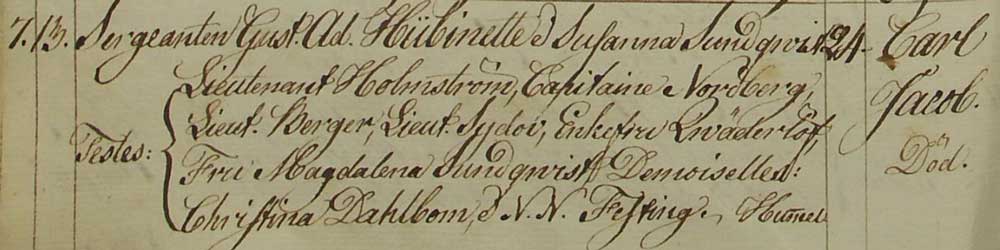 7. 13. Sergeanten Gust. Ad. Hübinette & Susanna Sundqwist 24 Carl
Lieutenant Holmström, Capitaine Nordberg, Jacob.
Lieut. Berger, Lieut. Sydov, Enkefru Qwäderlöf,
Testes: Fru Magdalena Sundqwist Demoiselles: Död.
Christina Dahlbom, & N. N. Festing.